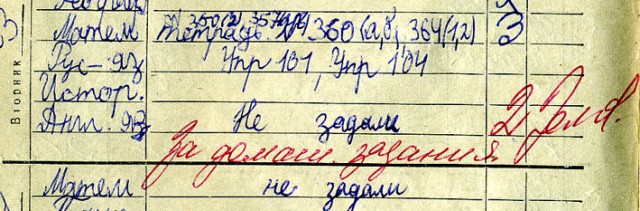 Матем № 350(2), 357(1,2)
тетрадь № 360 (а,б), 364(1,2) 3
Вторник
Рус-яз Упр 101, Упр 104
Истор.
Англ. яз Не задали 2
За домаш. задания
Матем не задали